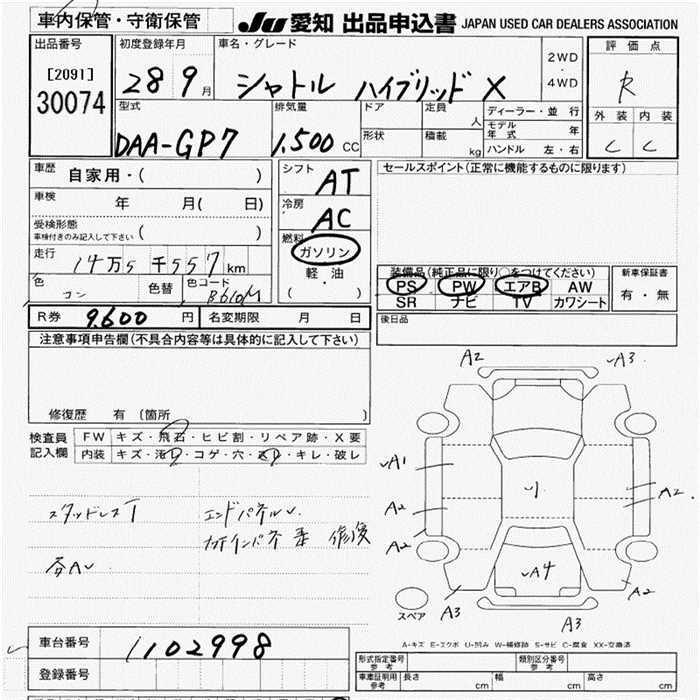 車内保管・守衛保管
JU 愛知 出品申込書 JAPAN USED CAR DEALERS ASSOCIATION
出品番号
[2091]
30074
初度登録年月
28 9月
車名・グレード
シャトル ハイブリッド X
2WD
・
4WD
評価点
R
外装 内装
C C
型式
DAA-GP7
排気量
1.500 cc
ドア
形状
定員
人
積載
kg
ディーラー・並行
モデル年式 年
ハンドル 左・右
車歴
自家用・( )
車検
年 月( 日)
受検形態
車検付きのみ記入して下さい ( )
走行
14万5千557km
色
コン
色替
色コード
B610M
シフト
AT
冷房
AC
燃料
ガソリン
・
軽・油
( )
セールスポイント(正常に機能するものに限ります)
装備品(純正品に限り○をつけてください)
PS PW エアB AW
SR ナビ TV カワシート
新車保証書
有・無
後日品
R券 9.600 円
名変期限 月 日
注意事項申告欄(不具合内容等は具体的に記入して下さい)
修復歴 有 (箇所 )
検査員
記入欄
FW キズ・飛石・ヒビ割・リペア跡・X要
内装 キズ・汚れ・コゲ・穴・スレ・キレ・破レ
スタッドレスT
エンドパネル
修復
A2
A3
A1
A2
A2
A2
A4
A2
A3
A3
スペア
A-キズ E-エクボ U-凹み W-補修跡 S-サビ C-腐食 XX-交換済
車台番号
1102998
登録番号
型式指定番号
参考
類別区分番号
参考
車庫証明用
参考
長さ cm
幅 cm
高さ cm